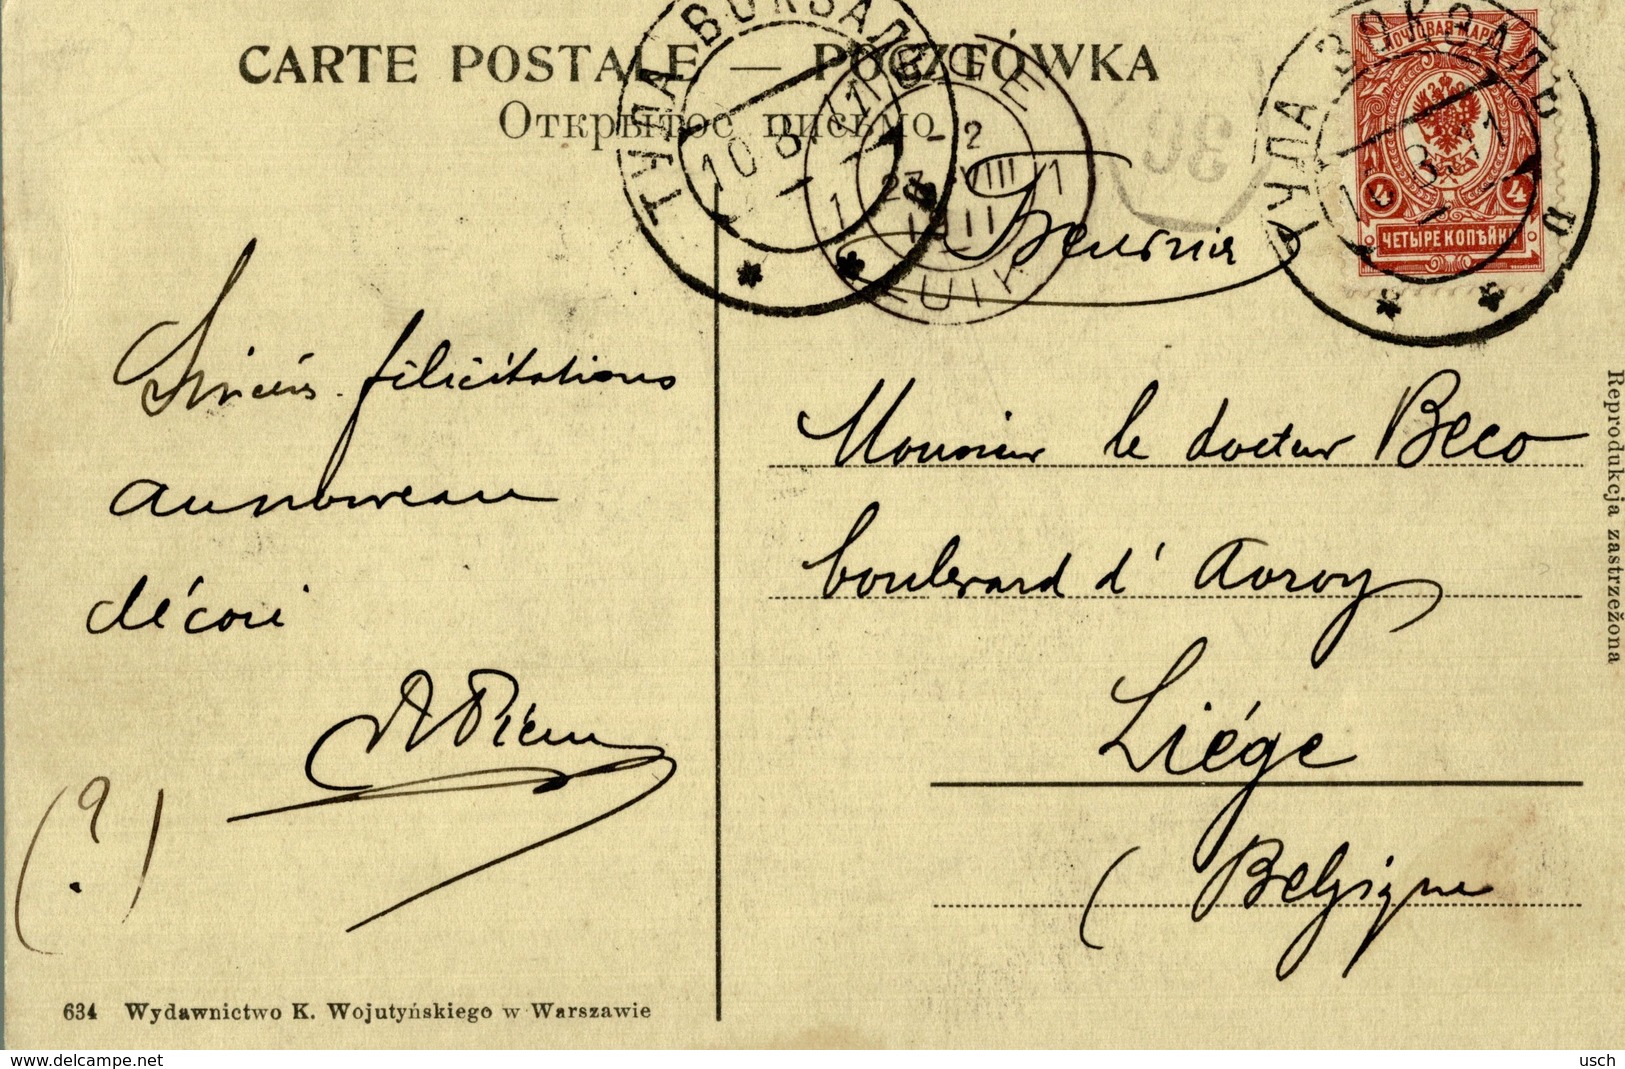 CARTE POSTALE — POCZTÓWKA
Открытое письмо
ТУЛА ВОКЗАЛЪ
10 8 11
LIÉGE
1-2
23 VIII
1911
LUIK
1 1
30
ТУЛА ВОКЗАЛЪ
10 8 11
ПОЧТОВАЯ МАРКА
4 4
ЧЕТЫРЕ КОПѢЙКИ
Sincères félicitations
au nouveau
décoré
(?)
Monsieur le docteur Beco
boulevard d'Avroy
Liége
(Belgique
634 Wydawnictwo K. Wojutyńskiego w Warszawie
Reprodukcja zastrzeżona
delcampe.net
usch